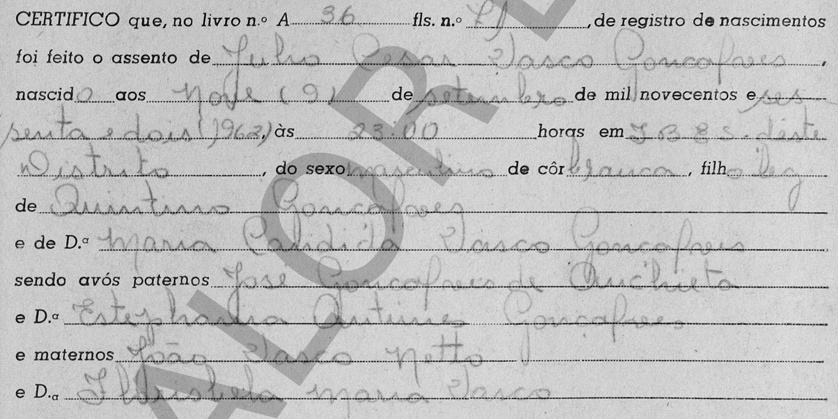 CERTIFICO que, no livro n.º A 36 fls. n.º , de registro de nascimentos
foi feito o assento de Julio Cesar Vasco Gonçalves,
nascido aos Nove (9) de setembro de mil novecentos e ses
senta e dois (1962) às 23:00 horas em I.B.E.S. dêste
Distrito, do sexo masculino de côr branca, filho leg
de Quintino Gonçalves
e de D.ª Maria Candida Vasco Gonçalves
sendo avós paternos José Gonçalves de Anchieta
e D.ª Estephania Antunes Gonçalves
e maternos João Vasco Netto
e D.ª Maria Vasco
VALOR